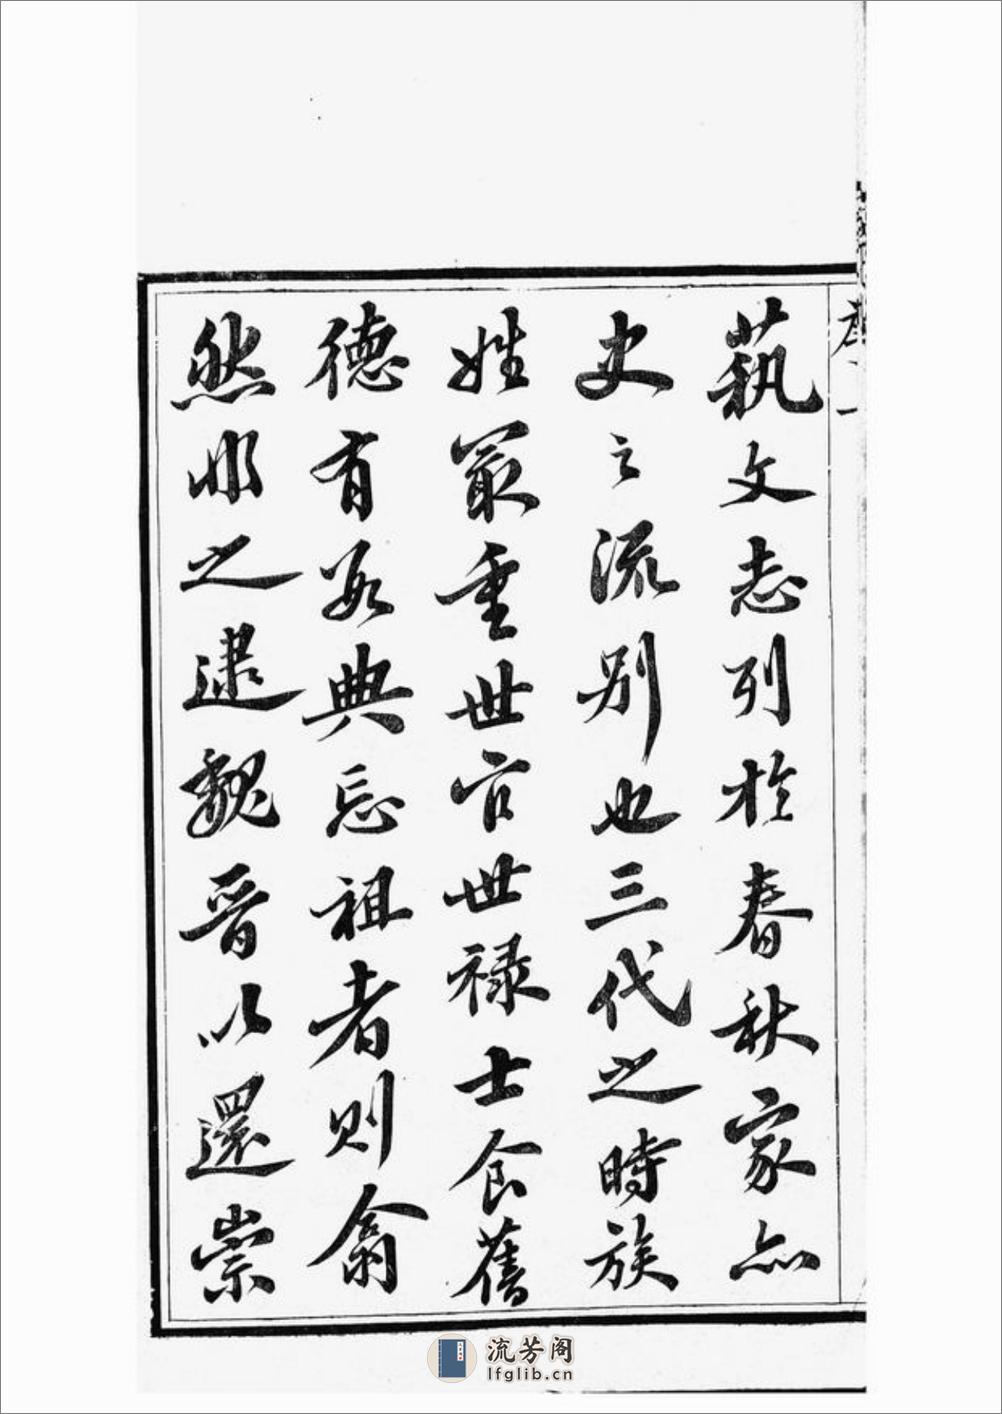 藝文志列於春秋家亦
史之流別也三代之時族
姓最重世官世祿士食舊
德有數典忘祖者則翕
然非之逮魏晉以還崇
流芳阁
lfglib.cn